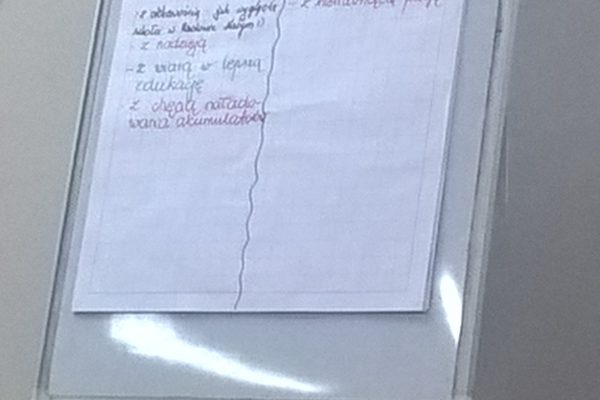 z jak wygląda
szkoła w
- z nadzieją
- z wiarą w lepszą
edukację
z chęcią nałado-
wania akumulatorów
- z